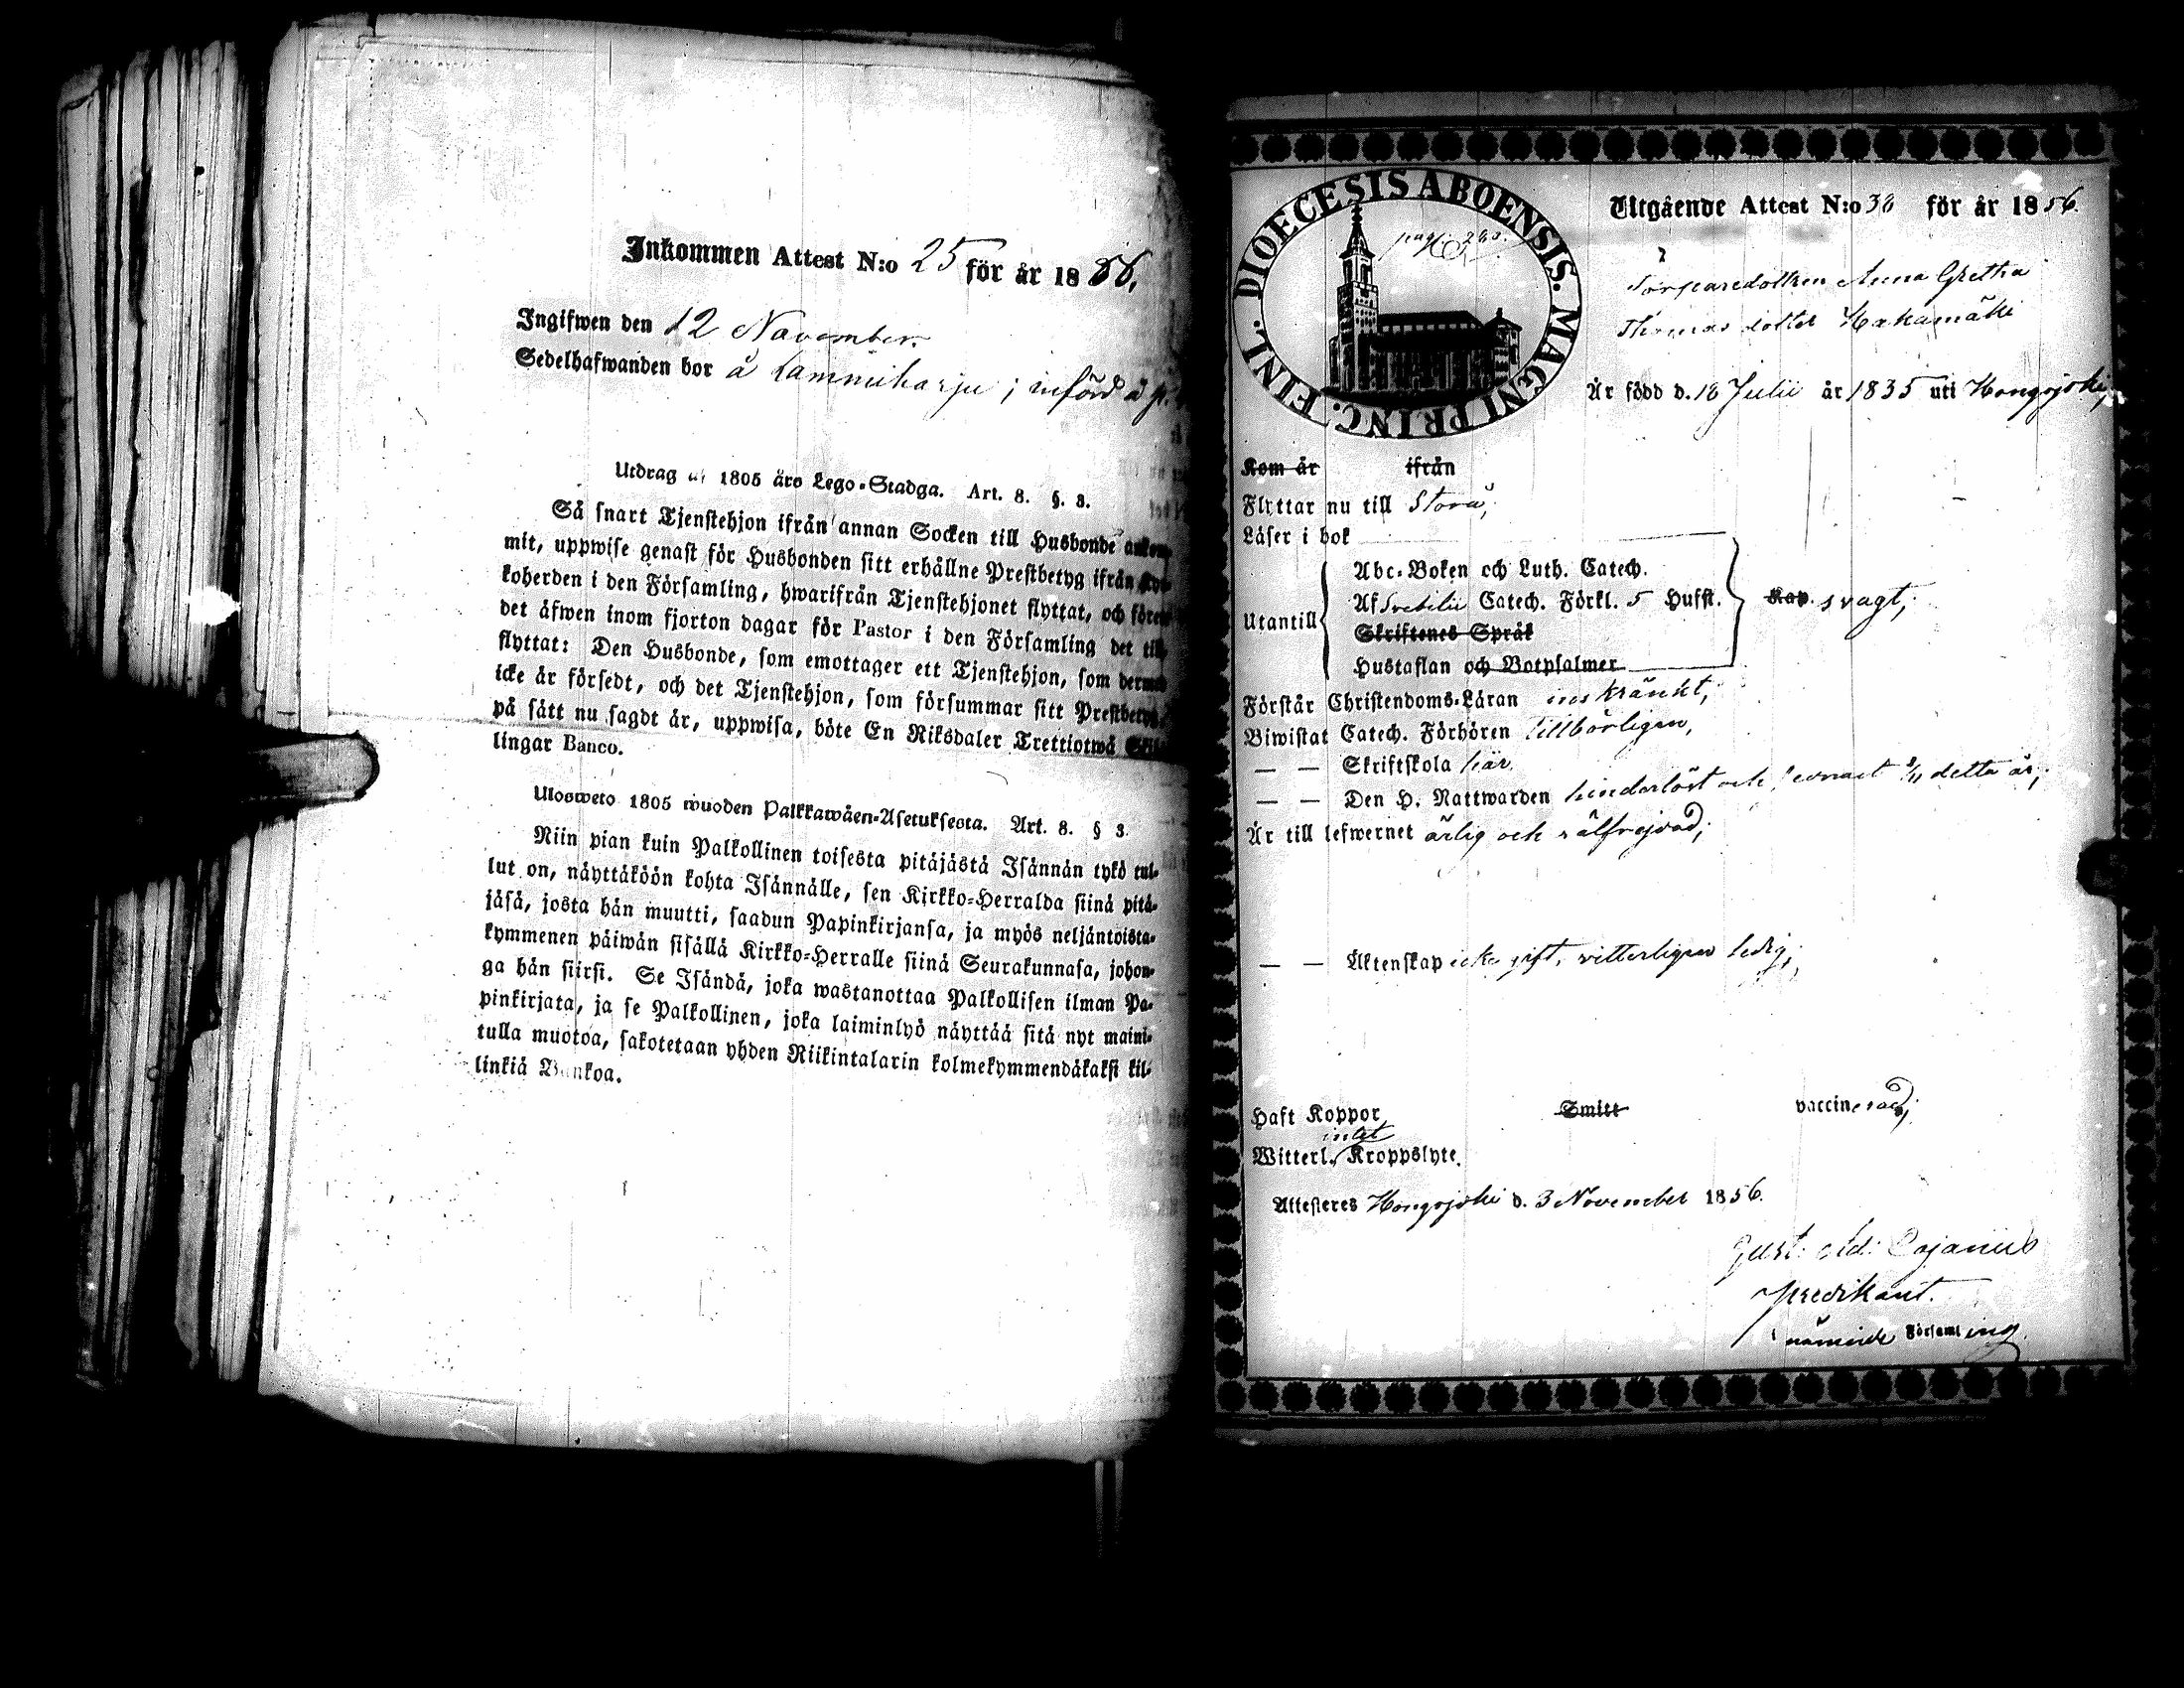 Inkommen Attest N:o 25 för år 1856.
Ingifwen den 12 November.
Sedelhafwanden bor å Lammiharju; införd å p.
Utdrag af 1805 års Lego-Stadga. Art. 8. §. 3.
Så snart Tjenstehjon ifrån annan Socken till Husbonde ankom-
mit, uppwise genast för Husbonden sitt erhållne Prestbetyg ifrån Kyr-
koherden i den Församling, hwarifrån Tjenstehjonet flyttat, och förete
det äfwen inom fjorton dagar för Pastor i den Församling det till-
flyttat: Den Husbonde, som emottager ett Tjenstehjon, som dermed
icke är försedt, och det Tjenstehjon, som försummar sitt Prestbetyg,
på sätt nu sagdt är, uppwisa, böte En Riksdaler Trettiotwå Skil-
lingar Banco.
Ulosweto 1805 wuoden Palkkawäen-Asetuksesta. Art. 8. § 3.
Niin pian kuin Palkollinen toisesta pitäjästä Isännän tykö tul-
lut on, näyttäköön kohta Isännälle, sen Kirkko-Herralda siinä pitä-
jäsä, josta hän muutti, saadun Papinkirjansa, ja myös neljäntoista-
kymmenen päiwän sisällä Kirkko-Herralle siinä Seurakunnasa, johon-
ga hän siirsi. Se Isändä, joka wastanottaa Palkollisen ilman Pa-
pinkirjata, ja se Palkollinen, joka laiminlyö näyttää sitä nyt maini-
tulla muotoa, sakotetaan yhden Riikintalarin kolmekymmendäkaksi kil-
linkiä Bankoa.
DIOECESIS ABOENSIS. MAGNI PRINC. FINL.
pag. 265.
Utgående Attest N:o 38 för år 1856.
Torparedottren Anna Gretha
Thomas dotter Hakamäki
Är född d. 18 Julii år 1835 uti Hongojoki,
Kom år ifrån
Flyttar nu till Storå,
Läser i bok
Abc-Boken och Luth. Catech.
Utantill Af Svebilii Catech. Förkl. 5 Hufst. Kap. svagt;
Skriftenes Språk
Hustaflan och Botpsalmer
Förstår Christendoms-Läran inskränkt;
Biwistat Catech. Förhören tillbörligen,
— — Skriftskola här.
— — Den H. Nattwarden hinderlöst och senast 2/11 detta år;
Är till lefwernet ärlig och välfrejdad;
— — Äktenskap icke gift, vitterligen ledig;
Haft Koppor, Smitt vaccinerad;
intet
Witterl. Kroppslyte.
Attesteres Hongojoki d. 3 November 1856.
Gust: Ad: Cajanus
Predikant.
i nämnde Församling.